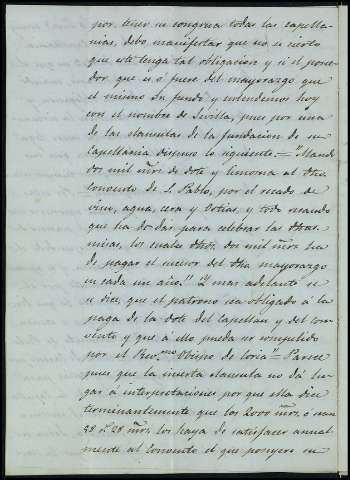 por tener su congrua todas las capella-
nias, debo manifestar que no es cierto
que este tenga tal obligacion y si el posee-
dor que es ó fuere del mayorazgo que
el mismo Sr fundó y entendemos hoy
con el nombre de Sevilla, pues por una
de las clausulas de la fundacion de su
Capellania dispuso lo siguiente = "Mando
dos mil mrs. de dote y limosna al dho.
Convento de S. Pablo, por el recado de
vino, agua, cera y Ostias, y todo recaudo
que ha de dar para celebrar las dhas.
misas, los cuales dhos. dos mil mrs. ha
de pagar el sucesor del dho mayorazgo
en cada un año." Y mas adelante se
dice, que el patrono sea obligado á la
paga de la dote del Capellan y del con-
vento y que á ello pueda ser compulido
por el Revmo Obispo de Coria = Parece
pues que la inserta clausula no dá lu-
gar á interpretaciones por que ella dice
terminantemente que los 2000 mrs. ó sean
58 rs. 28 mrs. los haya de satisfacer anual-
mente al Convento el que poseyere su